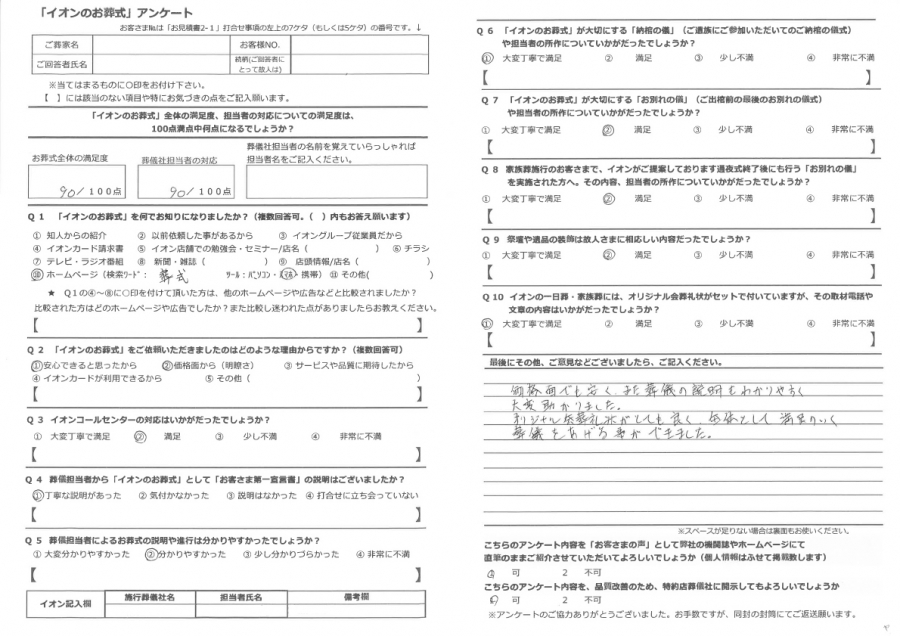 「イオンのお葬式」アンケート
お客さま№は「お見積書2-1」打合せ事項の左上の7ケタ（もしくは5ケタ）の番号です。↓
ご葬家名 お客様NO.
ご回答者氏名 続柄(ご回答者にとって故人は)
※当てはまるものに○印をお付け下さい。
【 】には該当のない項目や特にお気づきの点をご記入願います。
「イオンのお葬式」全体の満足度、担当者の対応についての満足度は、
100点満点中何点になるでしょうか？
お葬式全体の満足度 葬儀社担当者の対応 葬儀社担当者の名前を覚えていらっしゃれば
担当者名をご記入ください。
90/100点 90/100点
Q 1 「イオンのお葬式」を何でお知りになりましたか？（複数回答可。（ ）内もお答え願います）
① 知人からの紹介 ② 以前依頼した事があるから ③ イオングループ従業員だから
④ イオンカード請求書 ⑤ イオン店舗での勉強会・セミナー/店名（ ） ⑥ チラシ
⑦ テレビ・ラジオ番組 ⑧ 新聞・雑誌（ ） ⑨ 店頭情報/店名（ ）
⑩ ホームページ（検索ﾜｰﾄﾞ： 葬式 ﾂｰﾙ：ﾊﾟｿｺﾝ・ｽﾏﾎ・携帯）⑪ その他( )
★ Q1の④～⑧に○印を付けて頂いた方は、他のホームページや広告などと比較されましたか？
比較された方はどのホームページや広告でしたか？また比較し迷われた点がありましたらお教えください。
【 】
Q 2 「イオンのお葬式」をご依頼いただきましたのはどのような理由からですか？（複数回答可）
①安心できると思ったから ②価格面から（明瞭さ） ③ サービスや品質に期待したから
④ イオンカードが利用できるから ⑤ その他（ ）
【 】
Q 3 イオンコールセンターの対応はいかがだったでしょうか？
① 大変丁寧で満足 ② 満足 ③ 少し不満 ④ 非常に不満
【 】
Q 4 葬儀担当者から「イオンのお葬式」として「お客さま第一宣言書」の説明はございましたか？
①丁寧な説明があった ② 気付かなかった ③ 説明はなかった ④ 打合せに立ち会っていない
【 】
Q 5 葬儀担当者によるお葬式の説明や進行は分かりやすかったでしょうか？
① 大変分かりやすかった ②分かりやすかった ③ 少し分かりづらかった ④ 非常に不満
【 】
イオン記入欄 施行葬儀社名 担当者氏名 備考欄
Q 6 「イオンのお葬式」が大切にする「納棺の儀」（ご遺族にご参加いただいてのご納棺の儀式）
や担当者の所作についていかがだったでしょうか？
① 大変丁寧で満足 ② 満足 ③ 少し不満 ④ 非常に不満
【 】
Q 7 「イオンのお葬式」が大切にする「お別れの儀」（ご出棺前の最後のお別れの儀式）
や担当者の所作についていかがだったでしょうか？
① 大変丁寧で満足 ② 満足 ③ 少し不満 ④ 非常に不満
【 】
Q 8 家族葬施行のお客さまで、イオンがご提案しております通夜式終了後にも行う「お別れの儀」
を実施された方へ。その内容、担当者の所作についていかがだったでしょうか？
① 大変丁寧で満足 ② 満足 ③ 少し不満 ④ 非常に不満
【 】
Q 9 祭壇や遺品の装飾は故人さまに相応しい内容だったでしょうか？
① 大変丁寧で満足 ② 満足 ③ 少し不満 ④ 非常に不満
【 】
Q 10 イオンの一日葬・家族葬には、オリジナル会葬礼状がセットで付いていますが、その取材電話や
文章の内容はいかがだったでしょうか？
① 大変丁寧で満足 ② 満足 ③ 少し不満 ④ 非常に不満
【 】
最後にその他、ご意見などございましたら、ご記入ください。
価格面でも安く、また葬儀の説明もわかりやすく
大変助かりました。
オリジナル会葬礼状がとても良く、全体として満足のいく
葬儀をあげる事ができました。
※スペースが足りない場合は裏面もお使いください。
こちらのアンケート内容を「お客さまの声」として弊社の機関誌やホームページにて
直筆のままご紹介させていただいてよろしいでしょうか（個人情報はふせて掲載致します）
1 可 2 不可
こちらのアンケート内容を、品質改善のため、特約店葬儀社に開示してもよろしいでしょうか
1 可 2 不可
※アンケートのご協力ありがとうございました。お手数ですが、同封の封筒にてご返送願います。